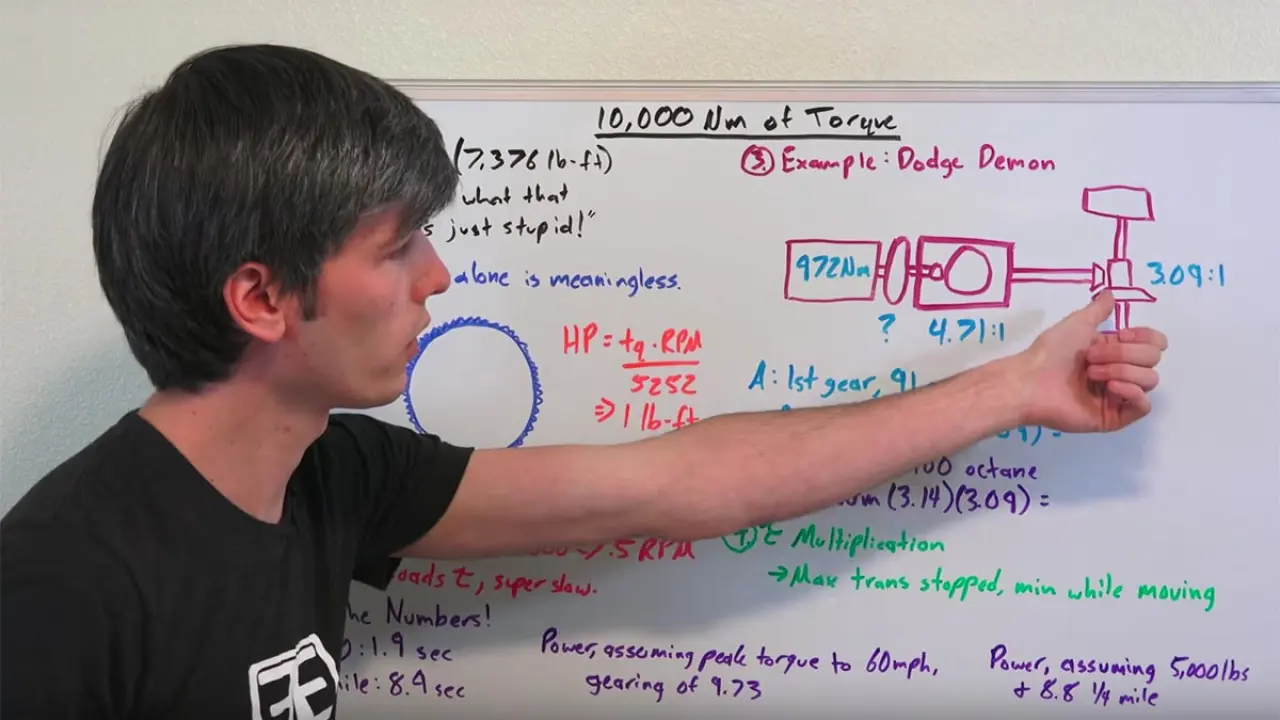 10,000 Nm of Torque
(7,376 lb-ft)
what that
just stupid!"
alone is meaningless.
HP = tq · RPM
5252
⇒ 1 lb-ft
③ Example: Dodge Demon
972Nm
3.09:1
?
4.71:1
A: 1st gear, 91
) =
100 octane
(3.14)(3.09) =
τ Multiplication
→ Max trans stopped, min while moving
.5 RPM
τ, super slow.
Numbers!
: 1.9 sec
: 8.9 sec
Power, assuming peak torque to 60mph,
gearing of 9.73
Power, assuming 5,000lbs
+ 8.8 1/4 mile